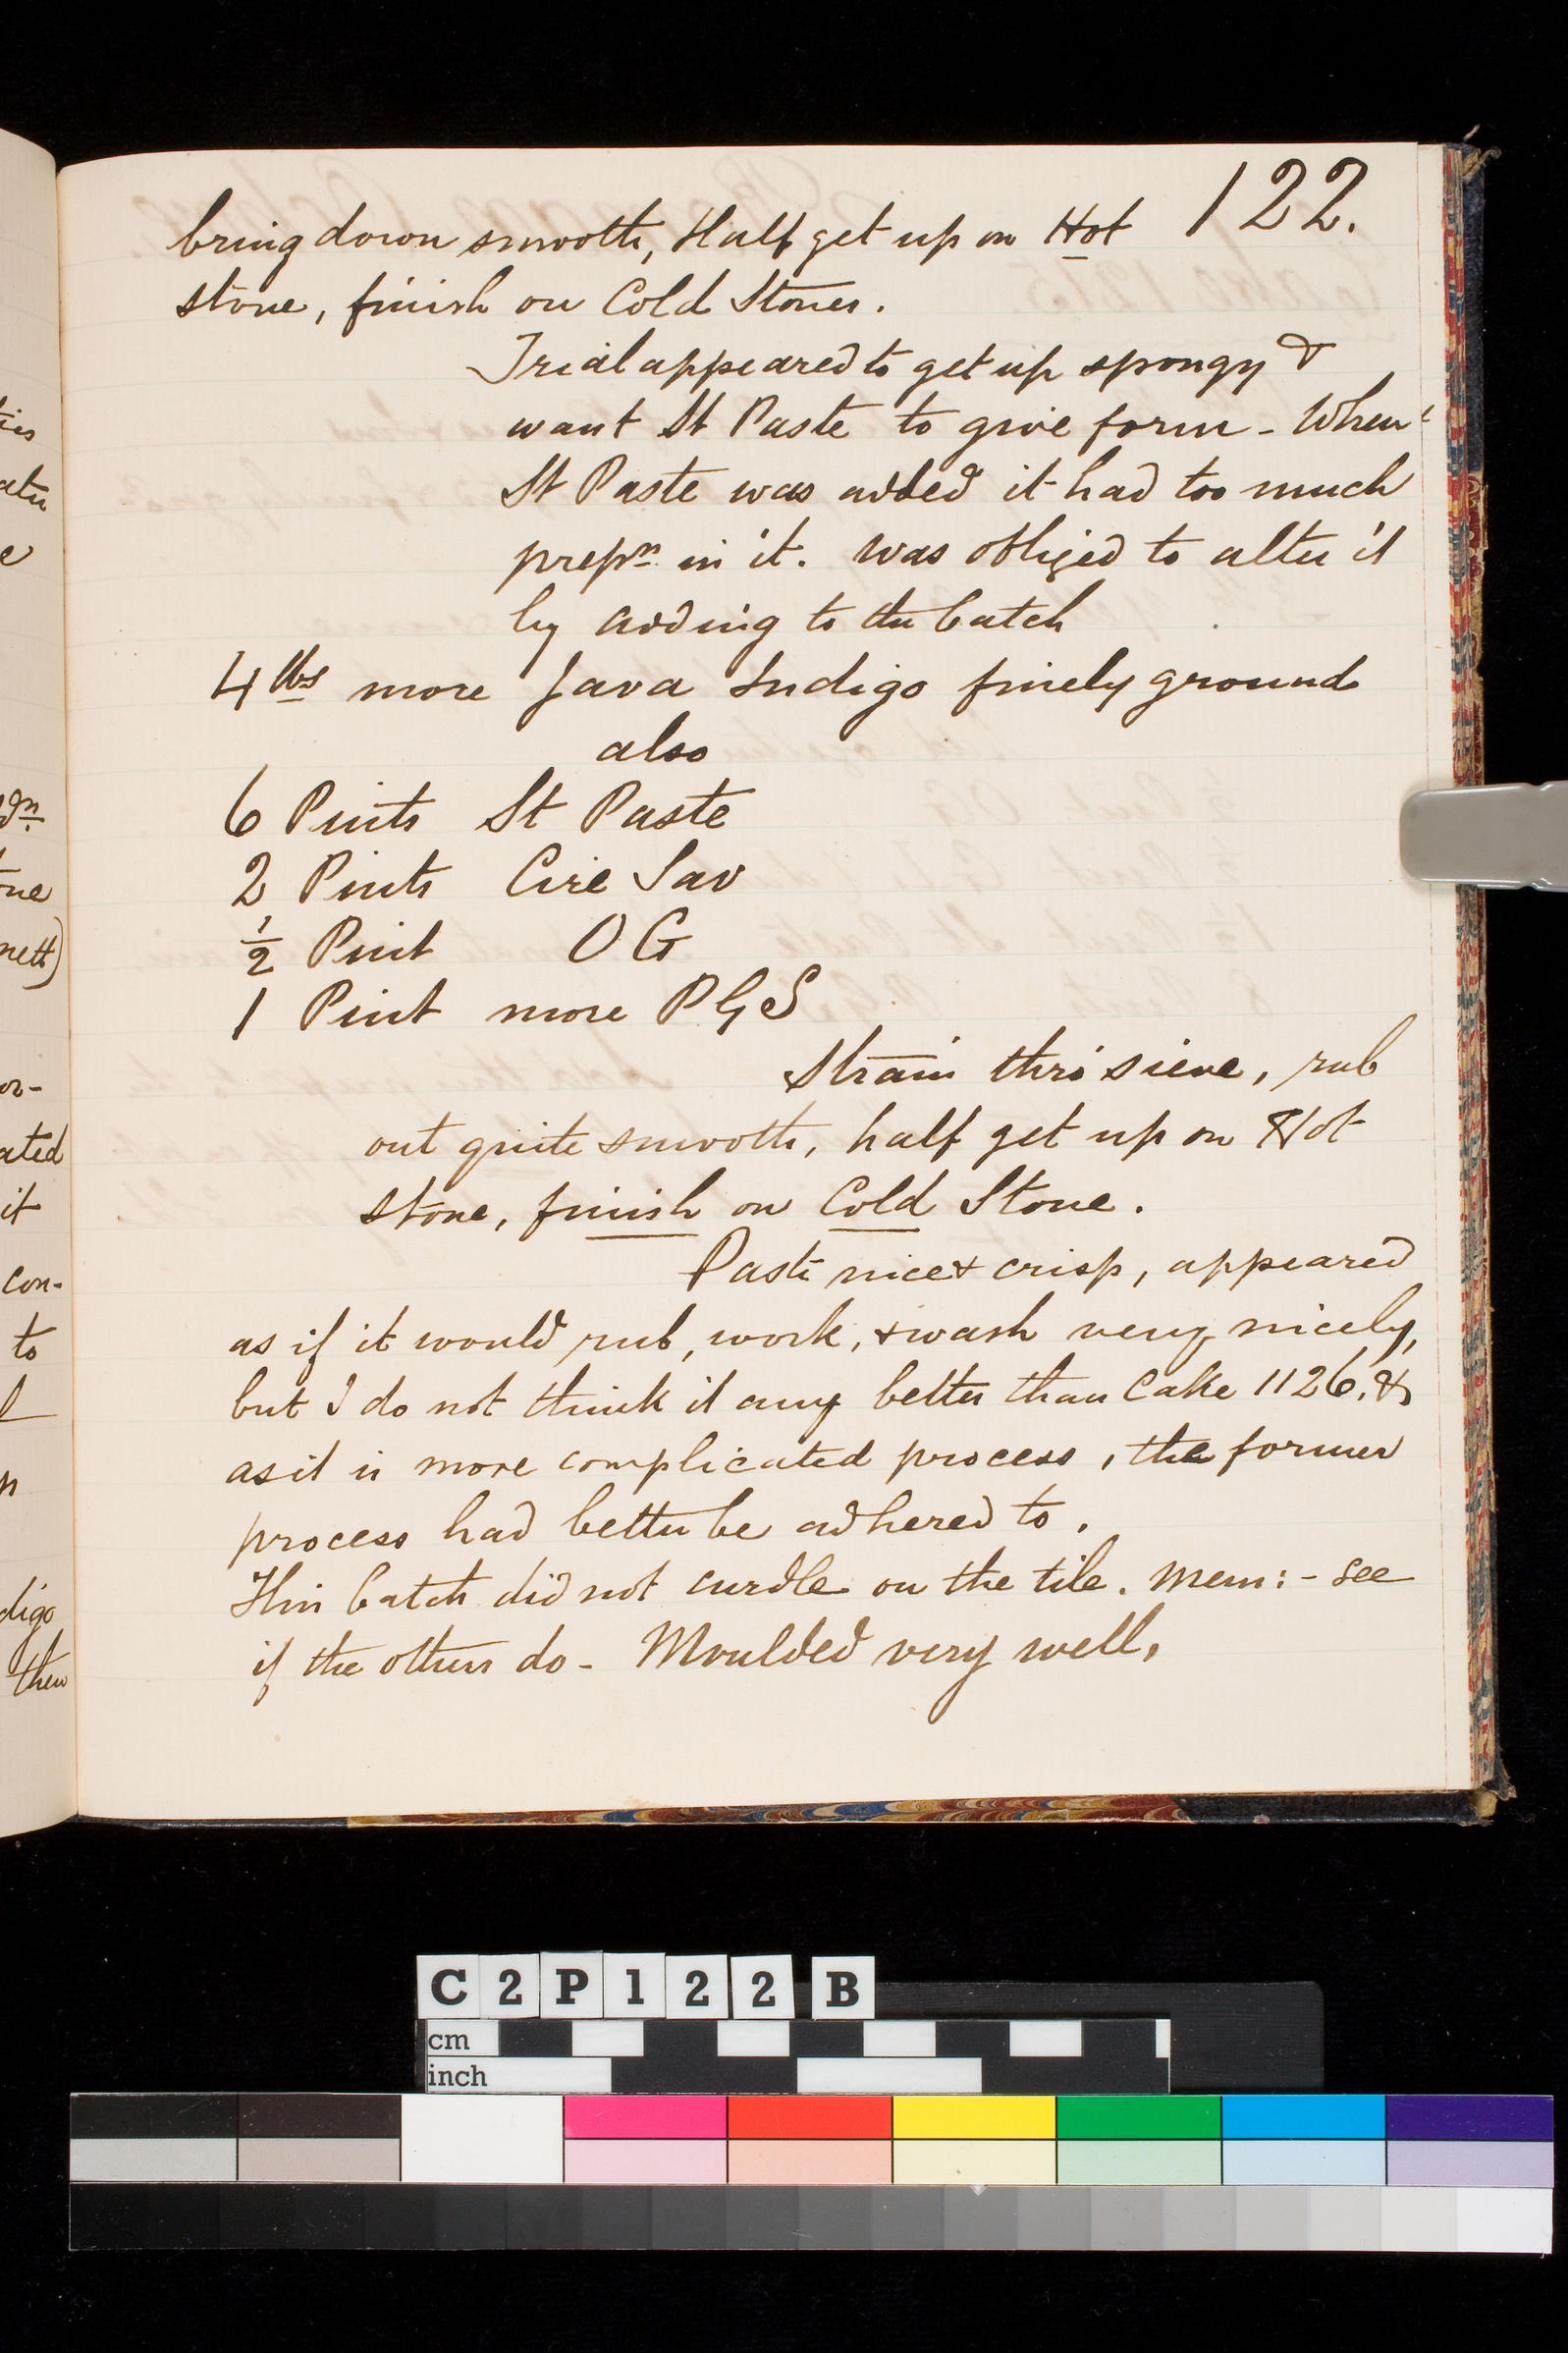 122.
bring down smooth, Half get up on Hot
stone, finish on Cold Stones.
Trial appeared to get up spongy &
want St Paste to give form - When
St Paste was added it had too much
prepn in it. was obliged to alter it
by adding to the batch
4 lbs more Java Indigo finely ground
also
6 Pints St Paste
2 Pints Cire Sav
1/2 Pint O G
1 Pint more P G S
Strain thro' sieve, rub
out quite smooth, half get up on Hot
stone, finish on Cold Stone.
Paste nice & crisp, appeared
as if it would rub, work, & wash very nicely,
but I do not think it any better than Cake 1126, &
as it is more complicated process, the former
process had better be adhered to.
This batch did not curdle on the tile. Mem: - see
if the others do - Moulded very well,
ated
it
con-
to
digo
then
C2P122 B
cm
inch